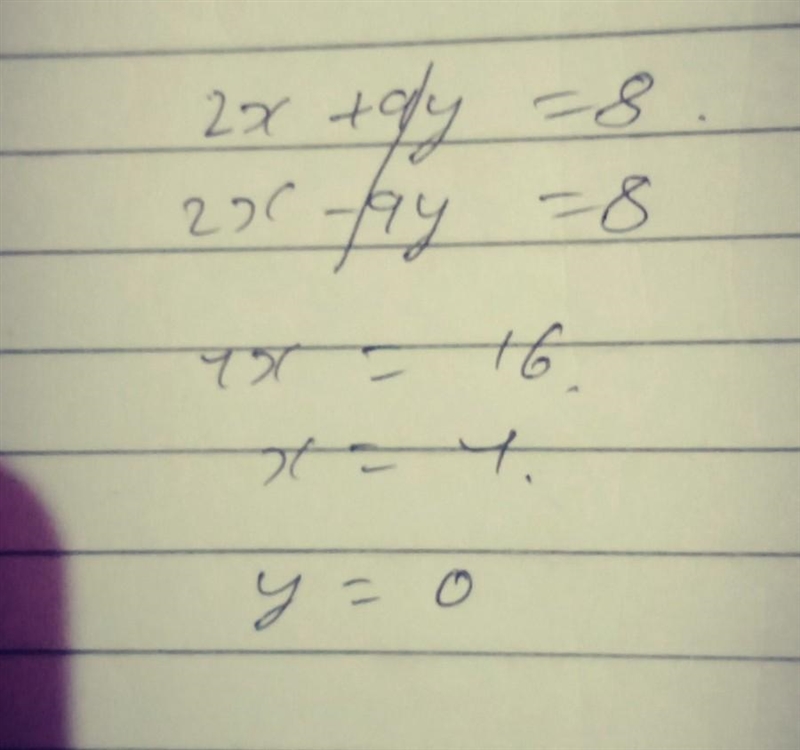 2x + 9y = 8.
2x - 9y = 8
4x = 16.
x = 4.
y = 0